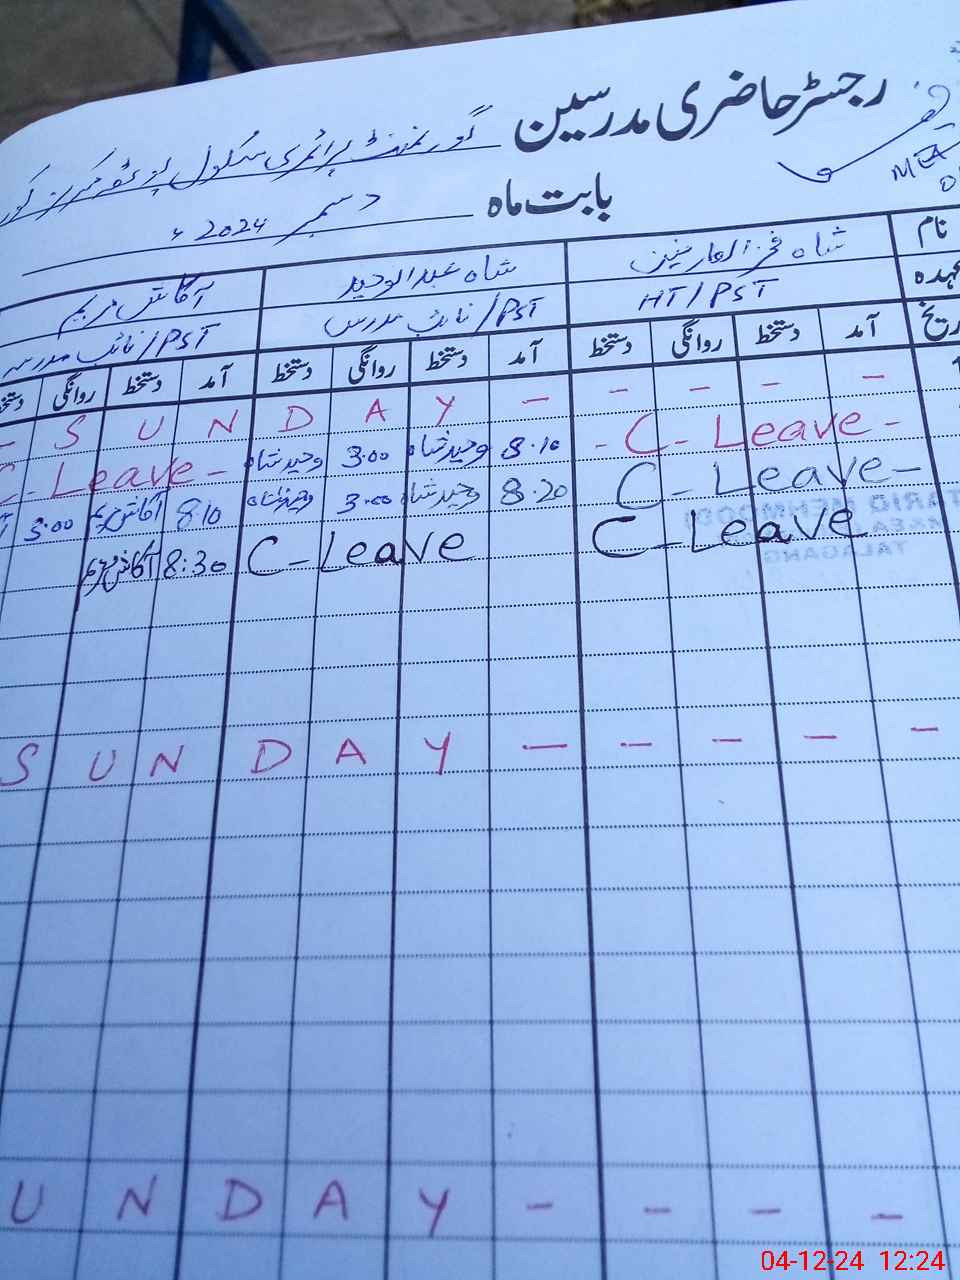 رجسٹر حاضری مدرسین گورنمنٹ پرائمری سکول
MEA
بابت ماہ دسمبر 2024ء
نام شاہ فخر العارفین شاہ عبدالوحید آکاش مریم
عہدہ HT/PST PST/نائب مدرس PST/نائب مدرس
تاریخ آمد دستخط روانگی دستخط آمد دستخط روانگی دستخط آمد دستخط روانگی
S U N D A Y - - - - -
- C - Leave - 8.10 وحید شاہ 3.00 وحید شاہ C - Leave -
C - Leave - 8.20 وحید شاہ 3.00 وحید شاہ 810 آکاش مریم 3:00
C - Leave C - Leave 8:30 آکاش مریم
TARIQ MEHMOOD
TALAGANG
S U N D A Y - - - - -
U N D A Y - - - -
04-12-24 12:24